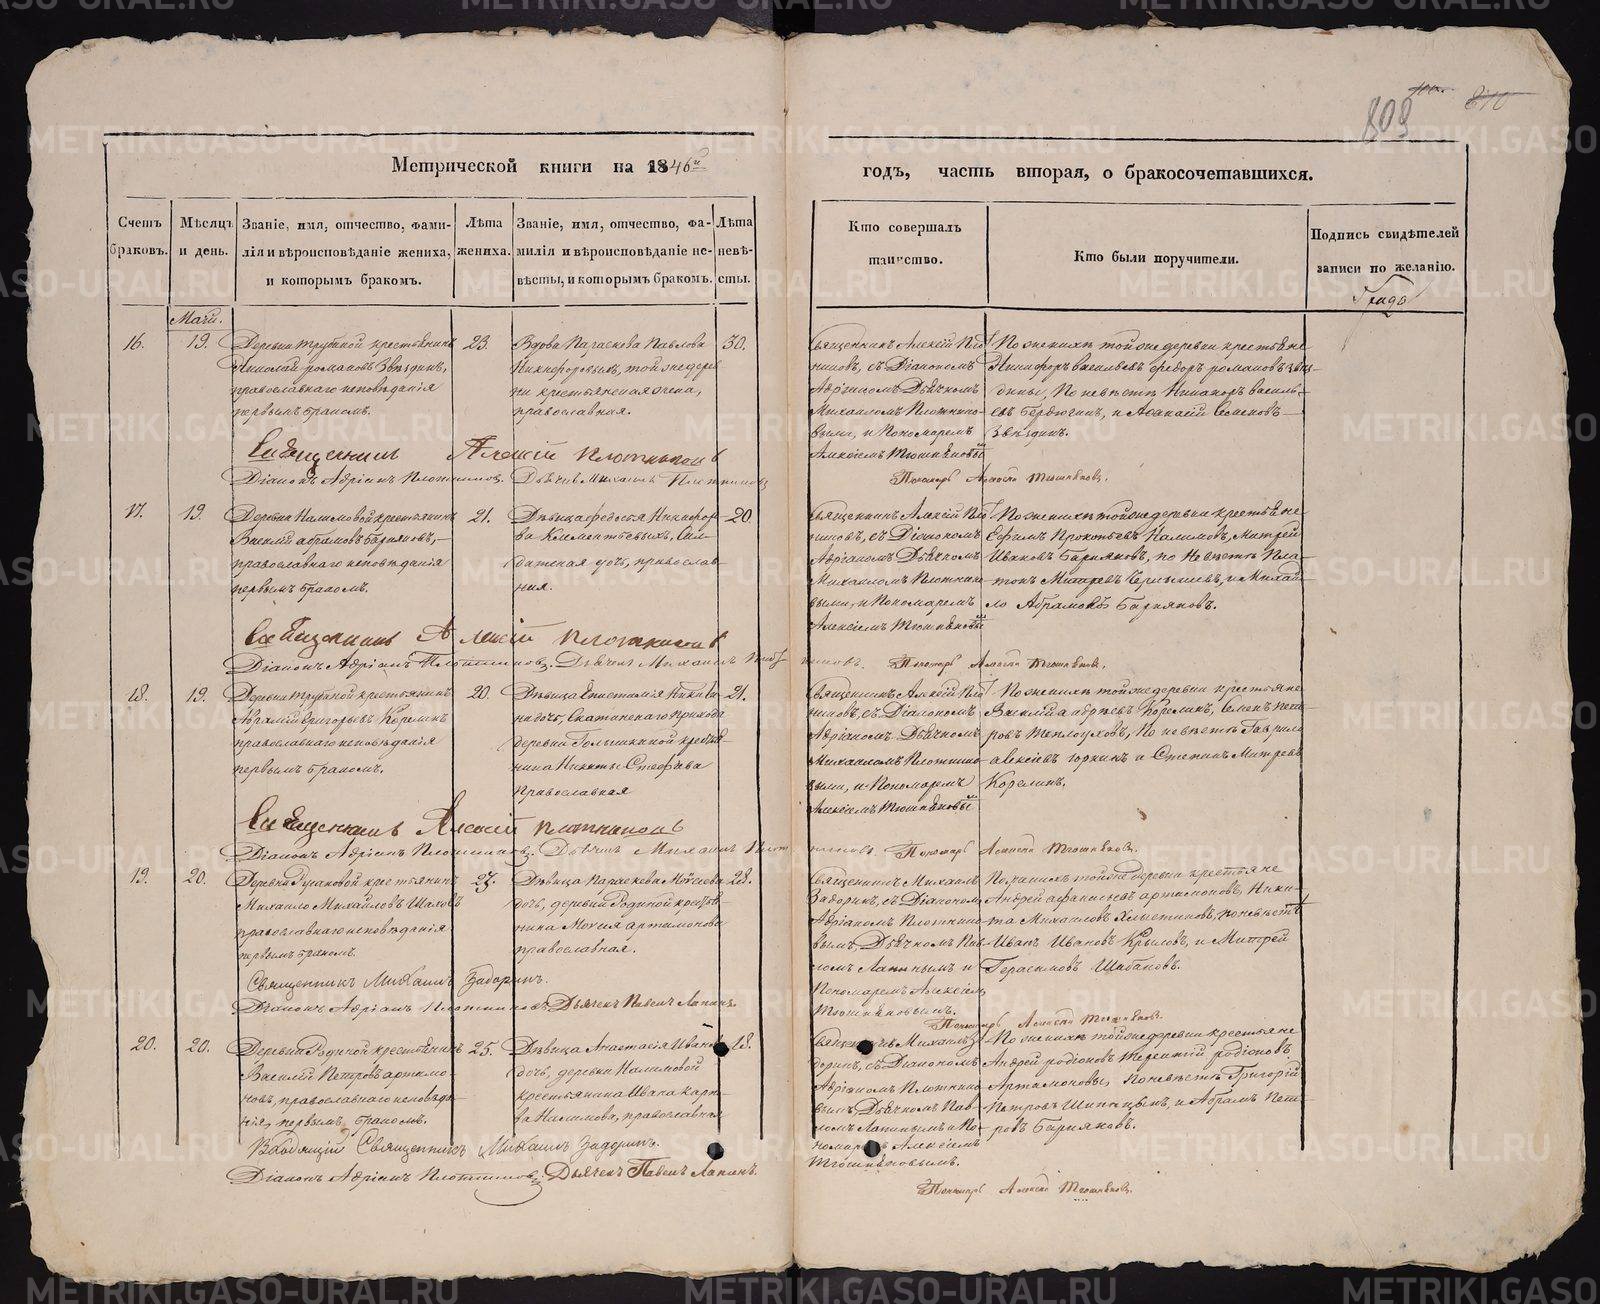 809
810
Метрической книги на 1846й
годъ, часть вторая, о бракосочетавшихся.
Счетъ браковъ.
Мѣсяцъ и день.
Званіе, имя, отчество, фами-
лія и вѣроисповѣданіе жениха,
и которымъ бракомъ.
Лѣта
жениха.
Званіе, имя, отчество, фа-
милія и вѣроисповѣданіе не-
вѣсты, и которымъ бракомъ.
Лѣта
невѣ-
сты.
Кто совершалъ
таинство.
Кто были поручители.
Подпись свидѣтелей
записи по желанію.
16.
19.
крестьянинъ
Николай Романовъ Звѣздинъ,
православнаго исповѣданія
первымъ бракомъ.
23.
Вдова Параскева Павлова
Никифоровыхъ, той же дерев
ни крестьянская жена,
православная.
30.
Священникъ Алексій Плот
никовъ, съ Діакономъ
Адріаномъ Дьячкомъ
Михаиломъ Плотнико-
выми, и Пономаремъ
Алексіемъ
По женихѣ той же деревни крестьяне
Никифоръ Васильевъ Федоръ Романовъ Звѣз-
дины, По невѣстѣ Никаноръ Василь-
евъ и Афанасій Семеновъ
Звѣздинъ.
Священникъ Алексій Плотниковъ
Діаконъ Адріанъ Плотниковъ. Дьячекъ Михаилъ Плотниковъ
Пономарь Алексѣй
17.
19.
Деревни Налимовой крестьянинъ
Василій Абрамовъ Баршковъ,
православнаго исповѣданія
первымъ бракомъ.
21.
Дѣвица Федосья Никифоро-
ва Клементьевыхъ, Сол-
датская дочь, православ
ная.
20.
Священникъ Алексій Плот
никовъ, съ Діакономъ
Адріаномъ Дьячкомъ
Михаиломъ Плотнико-
выми, и Пономаремъ
Алексіемъ
По женихѣ той же деревни крестьяне
Ефимъ Прокопьевъ Налимовъ, Митрей
Ивановъ по невѣстѣ Пла-
тонъ и Михай
ло Абрамовъ
Священникъ Алексій Плотниковъ
Діаконъ Адріанъ Плотниковъ. Дьячекъ Михаилъ Плотниковъ. Пономарь Алексѣй
18.
19.
крестьянинъ
Абрамій Григорьевъ Корелинъ
православнаго исповѣданія
первымъ бракомъ.
20.
Дѣвица Епистимія Ники
на дочь, Скатинскаго прихода
деревни крестья-
нина Никиты Стефанова
Православная
21.
Священникъ Алексій Плот
никовъ, съ Діакономъ
Адріаномъ Дьячкомъ
Михаиломъ Плотнико-
выми, и Пономаремъ
Алексіемъ
По женихѣ той же деревни крестьяне
Василій Андреевъ Корелинъ, Семенъ Пет-
ровъ Теплоуховъ, По невѣстѣ Гаврило
Алексіевъ Горкинъ и Степанъ Митревъ
Корелинъ.
Священникъ Алексій Плотниковъ
Діаконъ Адріанъ Плотниковъ. Дьячекъ Михаилъ Плотниковъ. Пономарь Алексѣй
19.
20.
крестьянинъ
Михайло Михайловъ
православнаго исповѣданія
первымъ бракомъ.
27.
Дѣвица Параскева Мойсеева
дочь, деревни Родиной крестья-
нина Мойсея Артамонова
православная.
28.
Священникъ Михаилъ
Задоринъ, съ Діакономъ
Адріаномъ Плотнико-
вымъ, Дьячкомъ Пав-
ломъ Лапинымъ и
Пономаремъ Алексіемъ
По женихѣ той же деревни крестьяне
Андрей Афанасьевъ Артамоновъ, Ники-
та Михайловъ по невѣстѣ
Иванъ Ивановъ Крыловъ, и Митрей
Герасимовъ Шабановъ.
Священникъ Михаилъ Задоринъ.
Діаконъ Адріанъ Плотниковъ Дьячекъ Павелъ Лапинъ.
Пономарь Алексѣй
20.
20.
Деревни Родиной крестьянинъ
Василій Петровъ Артамо-
новъ, православнаго исповѣда-
нія, первымъ бракомъ.
25.
Дѣвица Анастасія Иванова
дочь, деревни Налимовой
крестьянина Ивана Карпо-
ва Налимова, православная
18.
Михаилъ За-
доринъ, съ Діакономъ
Адріаномъ Плотнико-
вымъ Дьячкомъ Пав-
ломъ Лапинымъ и По-
номаремъ Алексіемъ
По женихѣ той же деревни крестьяне
Андрей Родіоновъ Терентій Родіоновъ
Артамоновы, По невѣстѣ Григорій
Петровъ Шипицынъ, и Абрамъ Пет-
ровъ
Входящій Священникъ Михаилъ Задоринъ.
Діаконъ Адріанъ Плотниковъ. Дьячекъ Павелъ Лапинъ.
Пономарь Алексѣй
METRIKI.GASO-URAL.RU